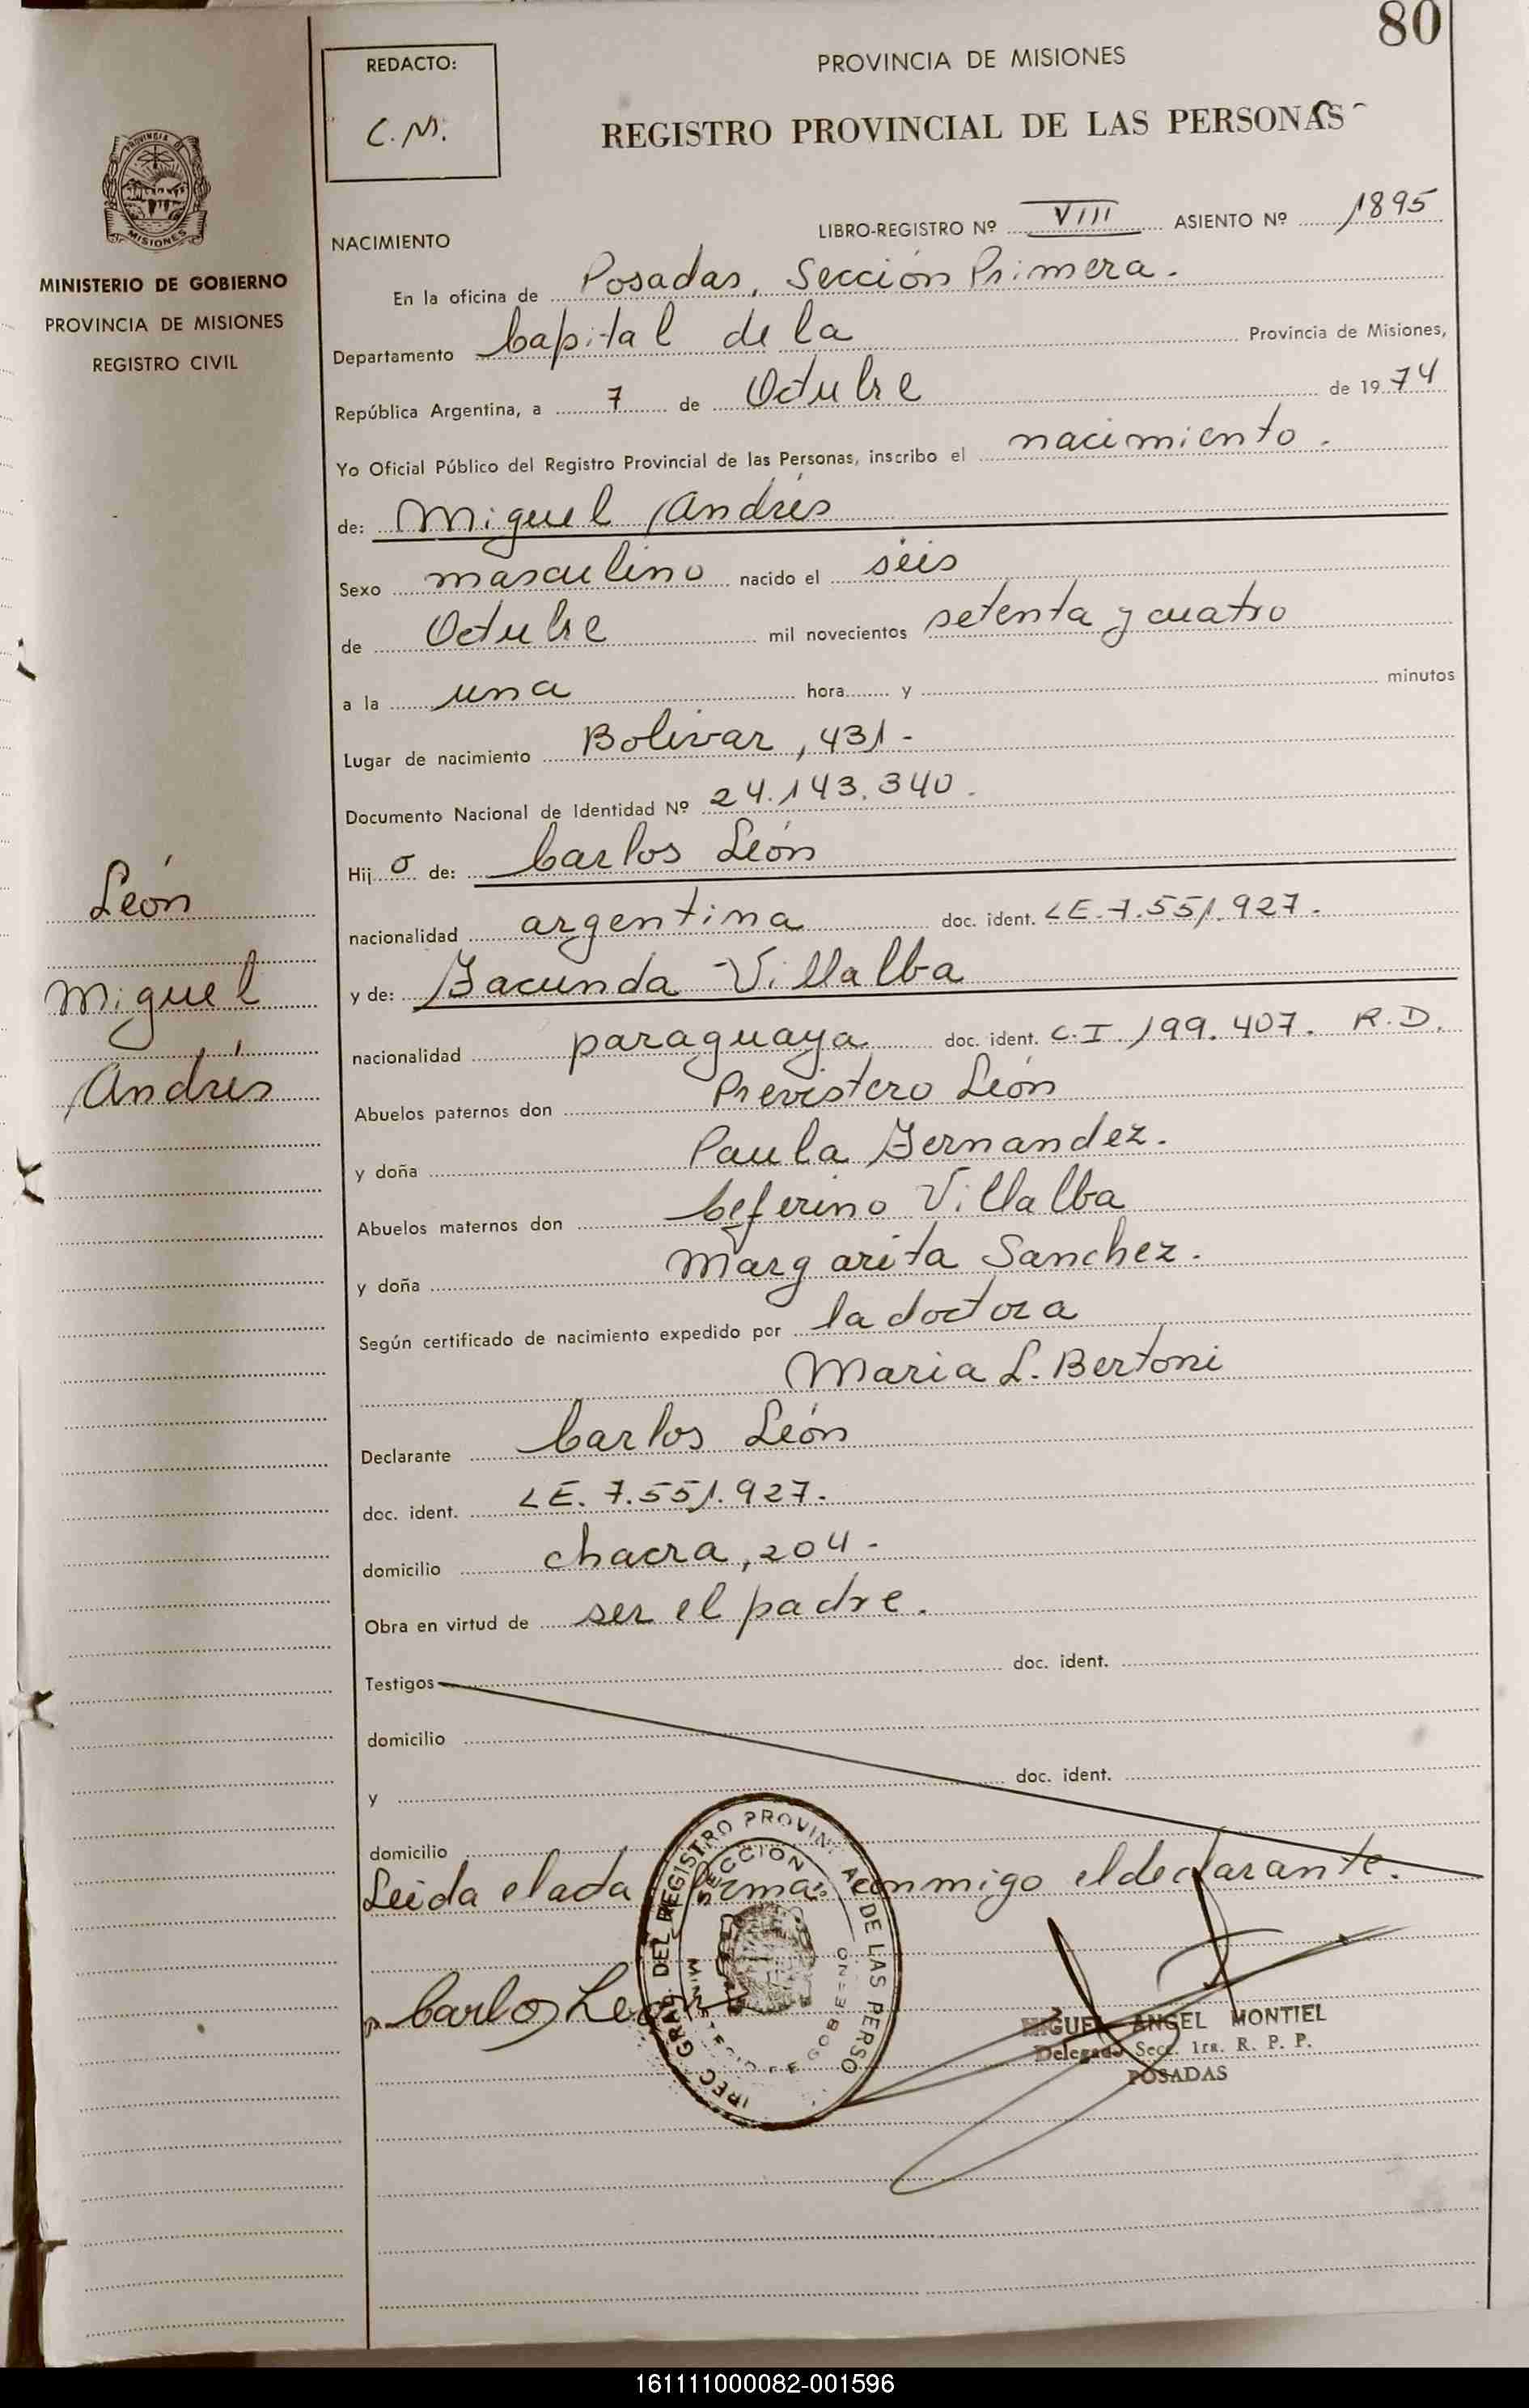 80
REDACTO:
C.M.
PROVINCIA DE MISIONES
REGISTRO PROVINCIAL DE LAS PERSONAS
PROVINCIA DE
MISIONES
MINISTERIO DE GOBIERNO
PROVINCIA DE MISIONES
REGISTRO CIVIL
NACIMIENTO
LIBRO-REGISTRO Nº VIII ASIENTO Nº 1895
En la oficina de Posadas, Sección Primera.
Departamento Capital de la Provincia de Misiones,
República Argentina, a 7 de Octubre de 1974
Yo Oficial Público del Registro Provincial de las Personas, inscribo el nacimiento.
de: Miguel Andrés
Sexo masculino nacido el seis
de Octubre mil novecientos setenta y cuatro
a la una hora y minutos
Lugar de nacimiento Bolivar, 431-
Documento Nacional de Identidad Nº 24.143.340.
Hijo de: Carlos León
nacionalidad argentina doc. ident. LE.7.551.927.
y de: Facunda Villalba
nacionalidad paraguaya doc. ident. C.I 199.407. R.D.
Abuelos paternos don Previstero León
y doña Paula Fernandez.
Abuelos maternos don Ceferino Villalba
y doña Margarita Sanchez.
Según certificado de nacimiento expedido por la doctora
Maria L. Bertoni
Declarante Carlos León
doc. ident. LE. 7.551.927.
domicilio chacra, 204-
Obra en virtud de ser el padre.
Testigos doc. ident.
domicilio
y doc. ident.
domicilio
Leida el acta firma conmigo el declarante.
León
Miguel
Andrés
Carlos León
MIGUEL ANGEL MONTIEL
Delegado Secc. 1ra. R. P. P.
POSADAS
DEL REGISTRO PROVIN AL DE LAS PERSO
SECCION
161111000082-001596